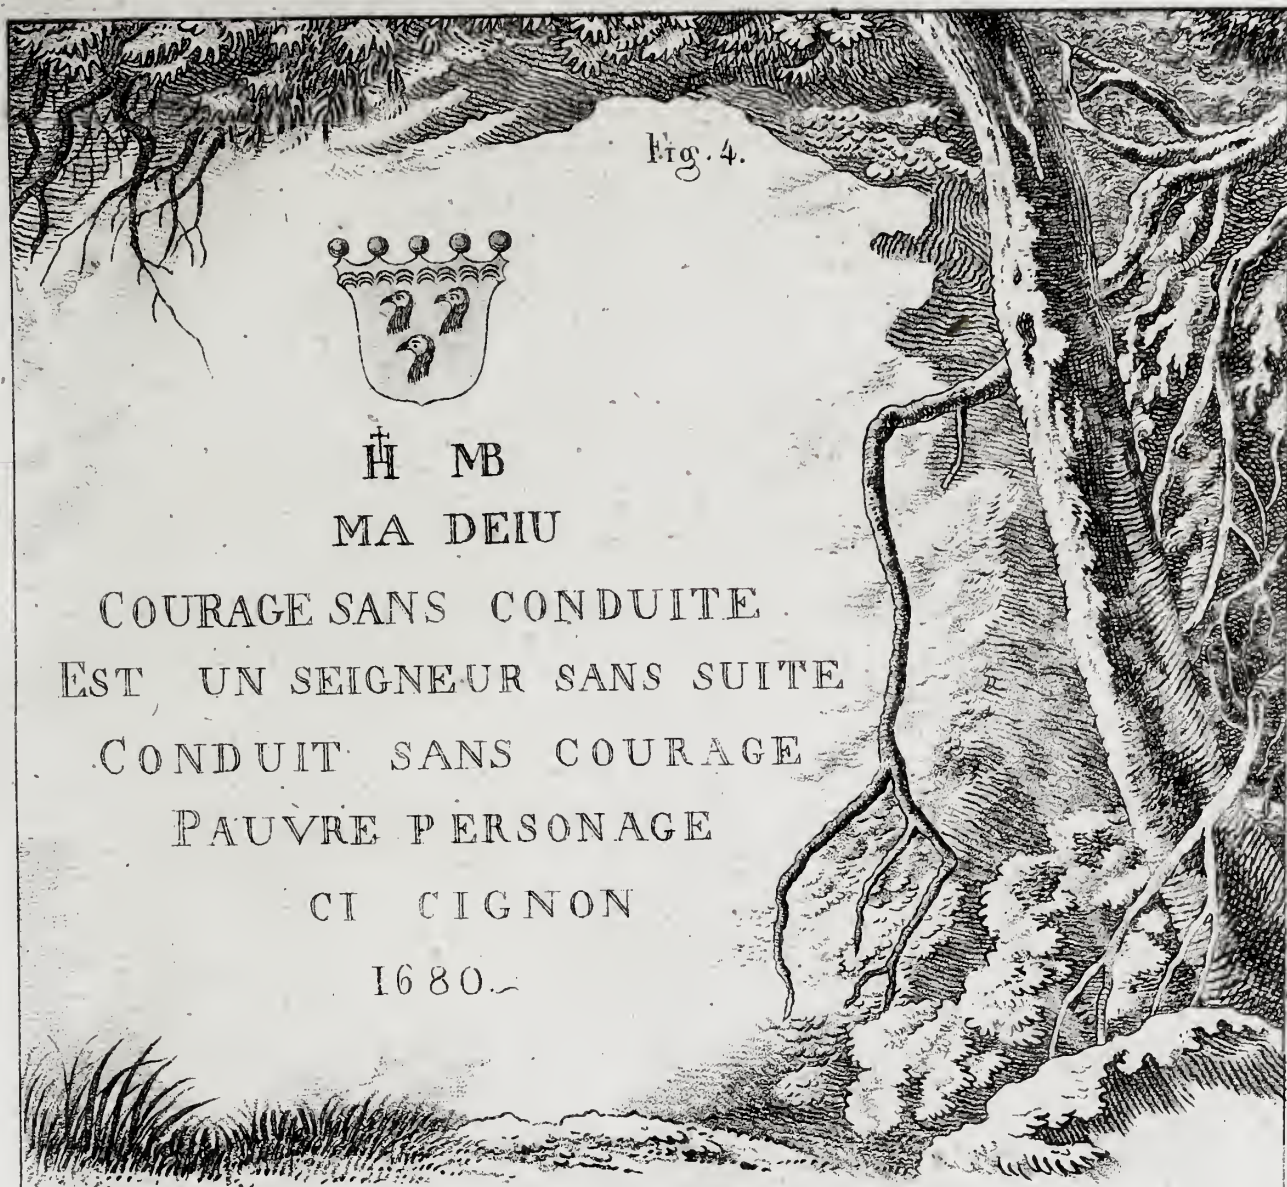 Fig. 4.
H MB
MA DEIU
COURAGE SANS CONDUITE
EST UN SEIGNEUR SANS SUITE
CONDUIT SANS COURAGE
PAUVRE PERSONAGE
CI CIGNON
1680.